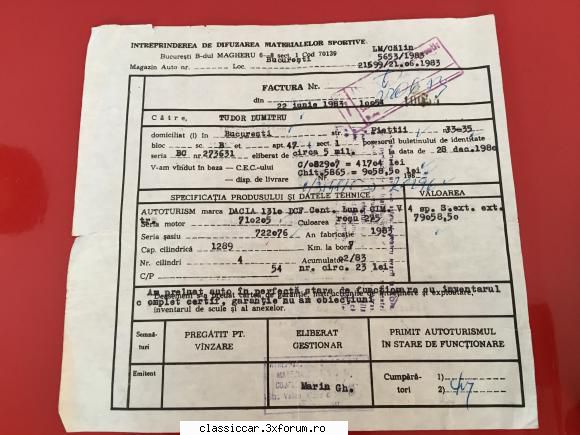 INTREPRINDEREA DE DIFUZAREA MATERIALELOR SPORTIVE
LM/Călin
București B-dul MAGHERU 6—8 sect. 1 Cod 70139
5653/1983
Magazin Auto nr. Loc. București
21599/21.06.1983
FACTURA Nr.
din 22 iunie 1983
Către, TUDOR DUMITRU
domiciliat (ă) în București str. Piattii 33-35
bloc sc. B et. apt. 47 sect. 1 posesorul buletinului de identitate
seria BO 273631 eliberat de circa 5 mil. la data de 28 dec.1980
V-am vîndut în baza — C.E.C.-ului C/0829o7 = 417o4 lei
— disp. de livrare Nr. Chit.5865 = 9o58,5o lei
SPECIFICAȚIA PRODUSULUI ȘI DATELE TEHNICE
VALOAREA
AUTOTURISM marca DACIA 131o DCF Cent. Lum. CIM. V 4 sp. S.ext. ext.
tr.
79o58,5o
Seria motor 71o2o5 Culoarea roșu 225
Seria șasiu 722o76 An fabricație 1983
Cap. cilindrică 1289 Km. la bord 7
Nr. cilindri 4 Acumulator 02/83
C/P 54 nr. circ. 23 lei
Am preluat auto în perfectă stare de functionare cu inventarul
Deasemeni s-a predat cartea de garanție, instrucțiunile de întreținere și exploatare,
complet certif. garantie nu am obiectiuni
inventarul de scule și al anexelor.
Semnă-
turi
PREGĂTIT PT.
VÎNZARE
ELIBERAT
GESTIONAR
PRIMIT AUTOTURISMUL
ÎN STARE DE FUNCȚIONARE
Emitent
Marin Gh.
Cumpără-
tori
1)
2)
classiccar.3xforum.ro